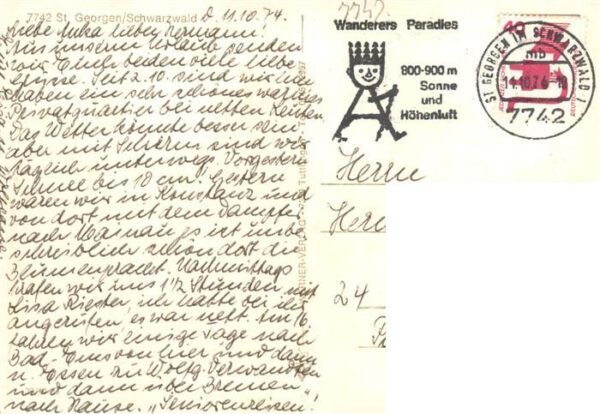 7742 St. Georgen/Schwarzwald d. 11.10.74.
Liebe Mika lieber Hermann!
Aus unserm Urlaub senden
wir Euch beiden viele liebe
Grüsse. Seit 2.10. sind wir hier
haben ein sehr schönes warmes
Privatquartier bei netten Leuten
Das Wetter könnte besser sein
aber mit Schirm sind wir
täglich unterwegs. Vorgestern
Schnee bis 10 cm. Gestern
waren wir in Konstanz und
von dort mit dem Dampfer
nach Mainau es ist unbe-
schreiblich schön dort die
Blumenpracht. Nachmittags
trafen wir uns 1 1/2 Stunden mit
Lisa Riester, ich hatte bei ihr
angerufen, es war nett. Am 16.
fahren wir einige Tage nach
Bad-Ems von hier und dann
n. Essen zu Wolfg. Verwandten
und dann über Bremen
nach Hause. "Seniorenreisen!"
7742.
Wanderers Paradies
800-900 m
Sonne
und
Höhenluft
ST GEORGEN IM SCHWARZWALD 1
mb
7742
Herrn
24